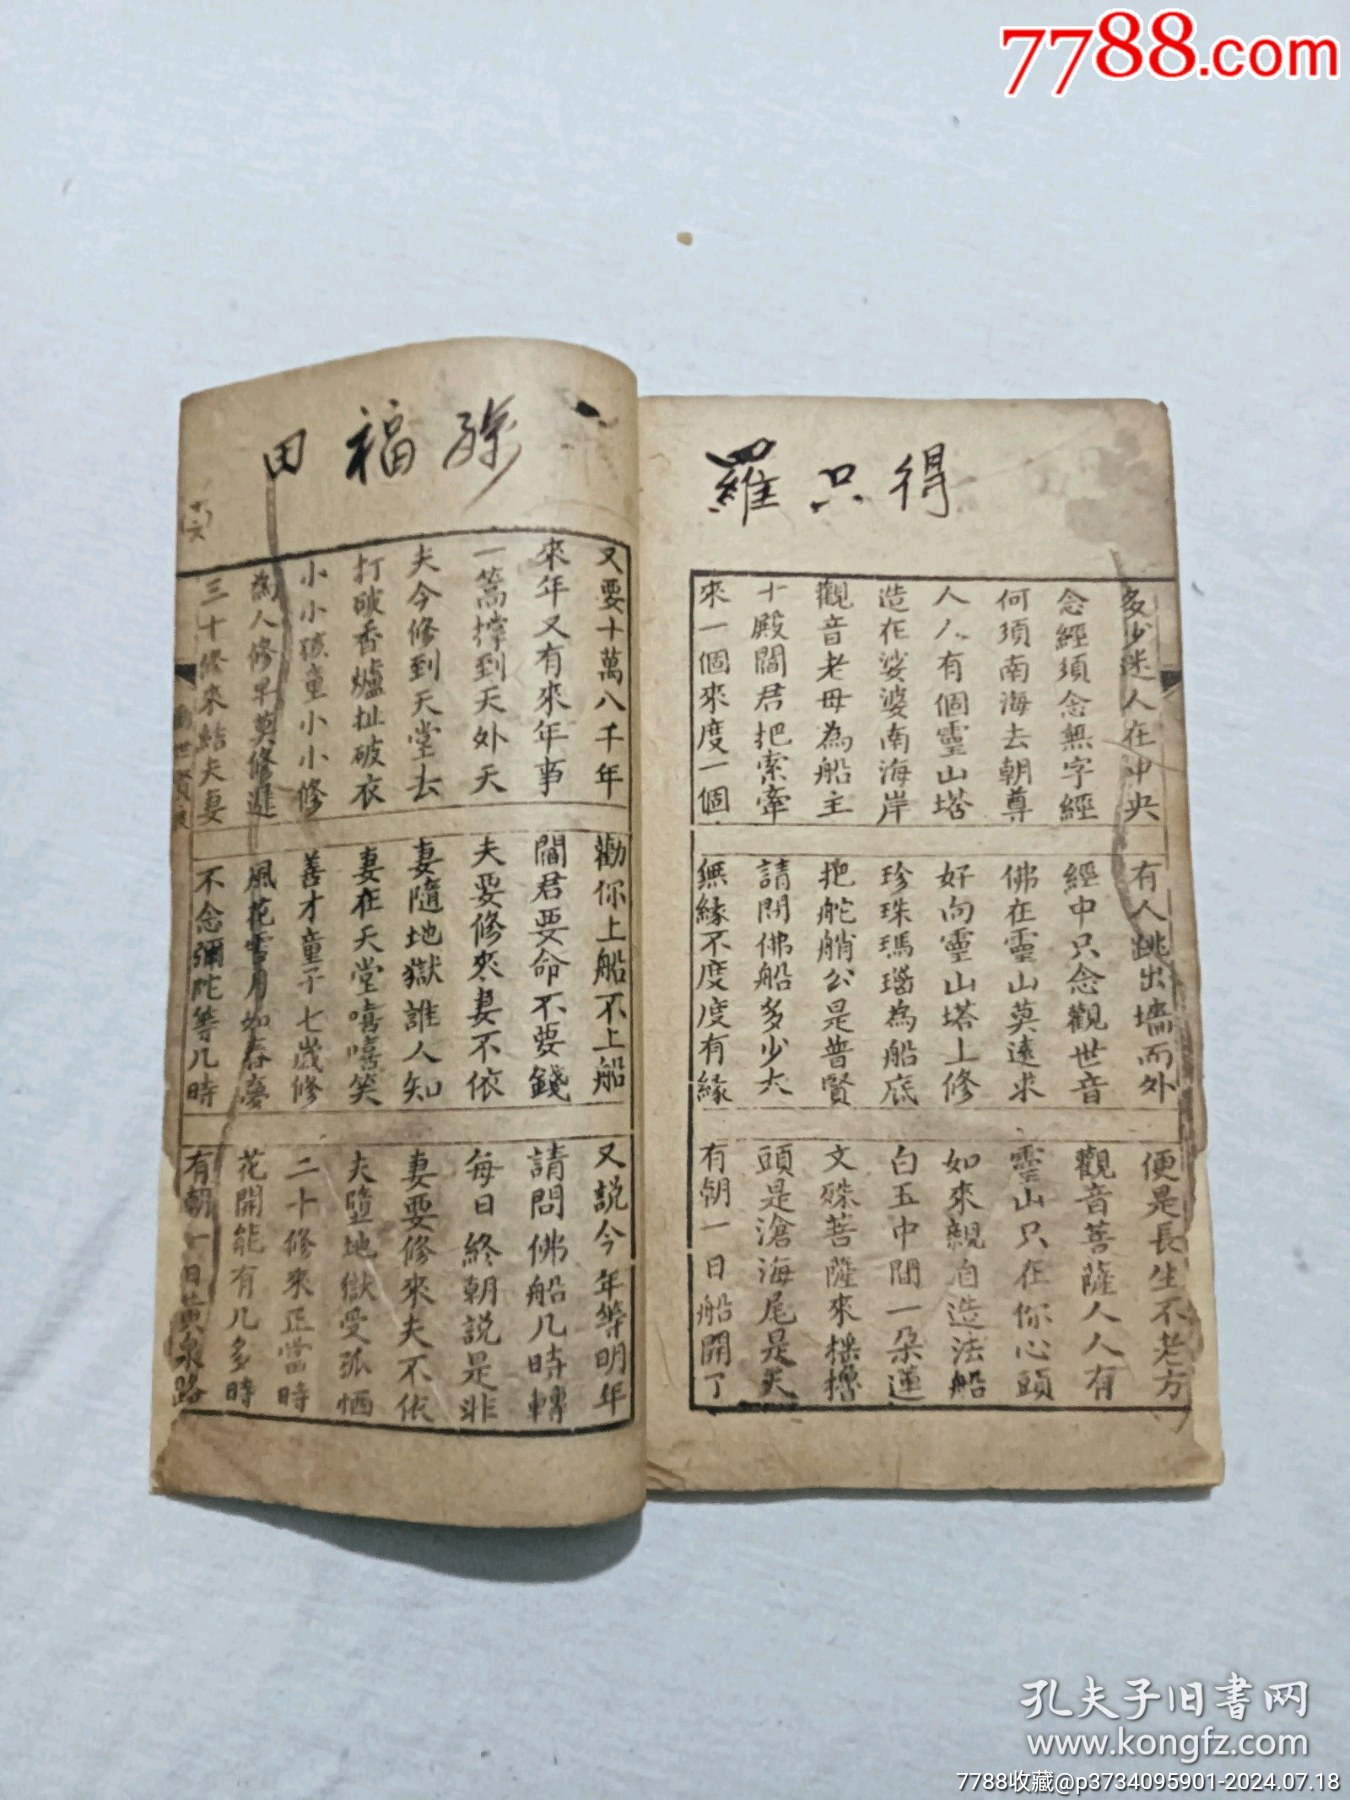 得只羅
多少迷人在中央 有人跳出墻而外 便是長生不老方
念經須念無字經 經中只念觀世音 觀音菩薩人人有
何須南海去朝尊 佛在靈山莫遠求 靈山只在你心頭
人人有個靈山塔 好向靈山塔上修 如來親自造法船
造在娑婆南海岸 珍珠瑪瑙為船底 白玉中間一朵蓮
觀音老母為船主 把舵艄公是普賢 文殊菩薩來摇櫓
十殿閻君把索牽 請問佛船多少大 頭是滄海尾是天
來一個來度一個 無緣不度度有緣 有朝一日船開了
福田
又要十萬八千年 勸你上船不上船 又説今年等明年
來年又有來年事 閻君要命不要錢 請問佛船几時轉
一篙撐到天外天 夫要修來妻不依 每日終朝説是非
夫今修到天堂去 妻隨地獄誰人知 妻要修來夫不依
打破香爐扯破衣 妻在天堂嘻嘻笑 夫墮地獄受孤恓
小小孩童小小修 善才童子七歲修 二十修來正當時
為人修早莫修遲 風花雪月如春夢 花開能有几多時
三十修來結夫妻 不念彌陀等几時 有朝一日黄泉路
十六
7788.com
孔夫子旧書网
www.kongfz.com
7788收藏@p3734095901-2024.07.18